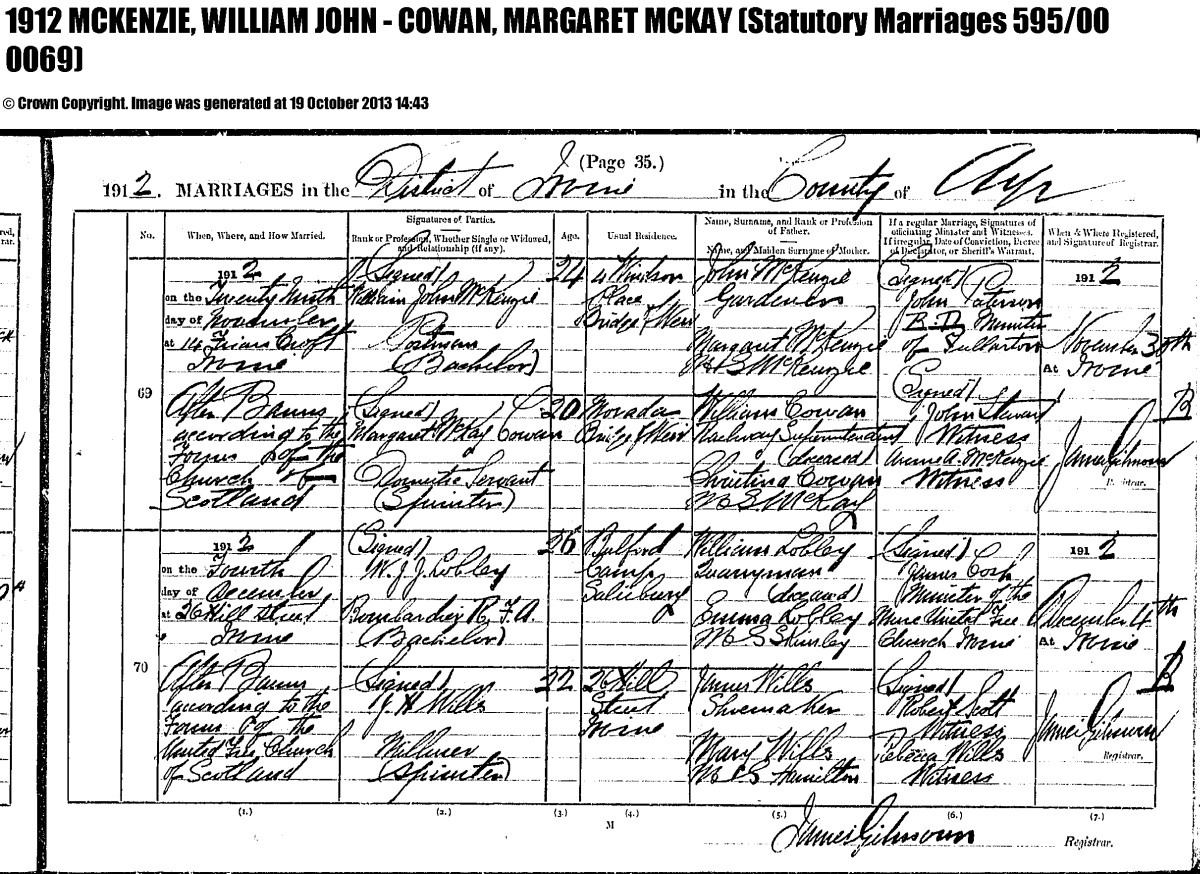 1912 MCKENZIE, WILLIAM JOHN - COWAN, MARGARET MCKAY (Statutory Marriages 595/00
0069)
© Crown Copyright. Image was generated at 19 October 2013 14:43
(Page 35.)
1912. MARRIAGES in the District of Irvine in the County of Ayr
No.
When, Where, and How Married.
Signatures of Parties.
Rank or Profession, Whether Single or Widowed, and Relationship (if any).
Age.
Usual Residence.
Name, Surname, and Rank or Profession of Father.
Name, and Maiden Surname of Mother.
If a regular Marriage, Signatures of officiating Minister and Witnesses.
If irregular, Date of Conviction, Decree of Declarator, or Sheriff's Warrant.
When & Where Registered, and Signature of Registrar.
69
1912
on the Twenty Ninth
day of November
at 14 Friars Croft
Irvine
After Banns
according to the
Forms of the
Church of
Scotland
(Signed)
William John McKenzie
Postman
(Bachelor)
(Signed)
Margaret McKay Cowan
Domestic Servant
(Spinster)
24
20
4 Windsor
Place
Bridge of Weir
Novada
Bridge of Weir
John McKenzie
Gardener
Margaret McKenzie
M.S. McKenzie
William Cowan
Railway Superintendent
(deceased)
Christina Cowan
M.S. McKay
(Signed)
John Paterson
B.D. Minister
of Fullarton
(Signed)
John Stewart
Witness
Annie A. McKenzie
Witness
1912
November 30th
At Irvine
James Gilmour
Registrar.
70
1912
on the Fourth
day of December
at 26 Hill Street
Irvine
After Banns
according to the
Forms of the
United Free Church
of Scotland
(Signed)
W. J. J. Lobley
Bombardier R.F.A.
(Bachelor)
(Signed)
J H Wills
Milliner
(Spinster)
26
22
Bulford
Camp
Salisbury
26 Hill
Street
Irvine
William Lobley
Quarryman
(deceased)
Emma Lobley
M.S. Skinley
James Wills
Shoemaker
Mary Wills
M.S. Hamilton
(Signed)
James Cosh
Minister of the
United Free
Church Irvine
(Signed)
Robert Scott
Witness
Rebecca Wills
Witness
1912
December 4th
At Irvine
James Gilmour
Registrar.
(1.) (2.) (3.) (4.) (5.) (6.) (7.)
M
James Gilmour Registrar.